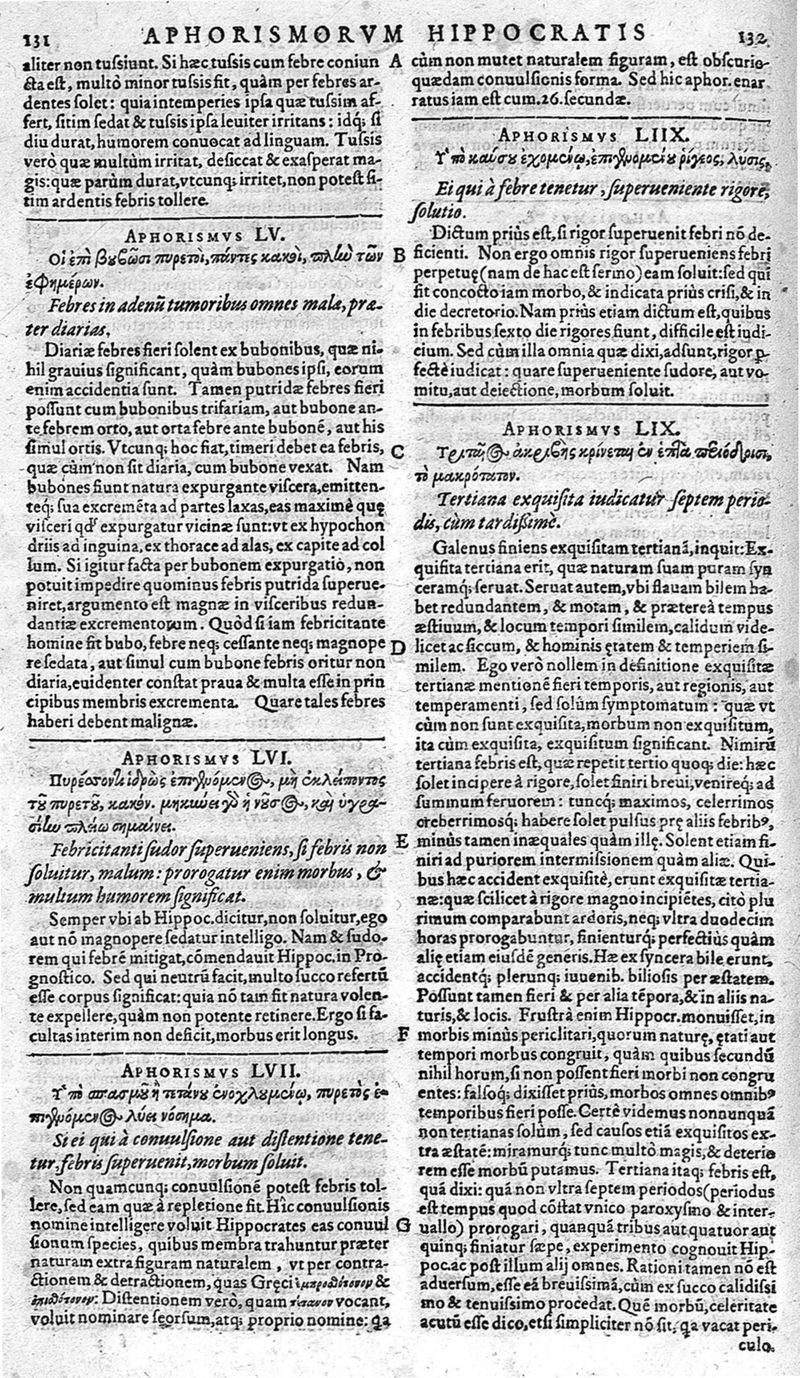 131 APHORISMORVM HIPPOCRATIS 132
aliter non tussiunt. Si hæc tussis cum febre coniun
cta est, multò minor tussis fit, quàm per febres ar-
dentes solet: quia intemperies ipsa quæ tussim af-
fert, sitim sedat & tussis ipsa leuiter irritans: idq; si
diu durat, humorem conuocat ad linguam. Tussis
verò quæ multùm irritat, desiccat & exasperat ma-
gis: quæ parùm durat, vtcunq; irritet, non potest si-
tim ardentis febris tollere.
APHORISMVS LV.
Οἱ ἐπὶ βουβῶσι πυρετοὶ, πάντες κακοὶ, πλὴν τῶν
ἐφημέρων.
Febres in adenũ tumoribus omnes malæ, præ-
ter diarias.
Diariæ febres fieri solent ex bubonibus, quæ ni-
hil grauius significant, quàm bubones ipsi, eorum
enim accidentia sunt. Tamen putridæ febres fieri
possunt cum bubonibus trifariam, aut bubone an-
te febrem orto, aut orta febre ante bubonẽ, aut his
simul ortis. Vtcunq; hoc fiat, timeri debet ea febris,
quæ cùm non sit diaria, cum bubone vexat. Nam
bubones fiunt natura expurgante viscera, emitten-
teq; sua excremẽta ad partes laxas, eas maximè quę
visceri qd' expurgatur vicinæ sunt: vt ex hypochon
driis ad inguina, ex thorace ad alas, ex capite ad col
lum. Si igitur facta per bubonem expurgatiò, non
potuit impedire quominus febris putrida superue-
niret, argumento est magnæ in visceribus redun-
dantiæ excrementorum. Quòd si iam febricitante
homine fit bubo, febre neq; cessante neq; magnope
re sedata, aut simul cum bubone febris oritur non
diaria, euidenter constat praua & multa esse in prin
cipibus membris excrementa. Quare tales febres
haberi debent malignæ.
APHORISMVS LVI.
Πυρέσσοντι ἱδρὼς ἐπιγινόμενος, μὴ ἐκλείποντος
τοῦ πυρετοῦ, κακόν. μηκύνει γὸ ἡ νοῦσος, καὶ ὑγρα-
σίην πλείω σημαίνει.
Febricitanti sudor superueniens, si febris non
soluitur, malum: prorogatur enim morbus, &
multum humorem significat.
Semper vbi ab Hippoc. dicitur, non soluitur, ego
aut nõ magnopere sedatur intelligo. Nam & sudo-
rem qui febrẽ mitigat, cõmendauit Hippoc. in Pro-
gnostico. Sed qui neutrũ facit, multo succo refertũ
esse corpus significat: quia nõ tam fit natura volen-
te expellere, quàm non potente retinere. Ergo si fa-
cultas interim non deficit, morbus erit longus.
APHORISMVS LVII.
Ὑπὸ σπασμοῦ ἢ τετάνου ἐνοχλουμένῳ, πυρετὸς ἐ-
πιγινόμενος λύει νόσημα.
Si ei qui à conuulsione aut distentione tene-
tur, febris superuenit, morbum soluit.
Non quamcunq; conuulsionẽ potest febris tol-
lere, sed eam quæ à repletione fit. Hîc conuulsionis
nomine intelligere voluit Hippocrates eas conuul
sionum species, quibus membra trahuntur præter
naturam extra figuram naturalem, vt per contra-
ctionem & detractionem, quas Gręci ἐμπροσθότονον &
ὀπισθότονον: Distentionem verò, quam τέτανον vocant,
voluit nominare seorsum, atq; proprio nomine: qa
A
B
C
D
E
F
G
cùm non mutet naturalem figuram, est obscurio-
quædam conuulsionis forma. Sed hic aphor. enar
ratus iam est cum. 26. secundæ.
APHORISMVS LIIX.
Ὑπὸ καύσου ἐχομένῳ, ἐπιγινομένου ῥίγεος, λύσις.
Ei qui à febre tenetur, superueniente rigore,
solutio.
Dictum priùs est, si rigor superuenit febri nõ de-
ficienti. Non ergo omnis rigor superueniens febri
perpetuę (nam de hac est sermo) eam soluit: sed qui
fit concocto iam morbo, & indicata priùs crisi, & in
die decretorio. Nam priùs etiam dictum est, quibus
in febribus sexto die rigores fiunt, difficile est iudi-
cium. Sed cùm illa omnia quæ dixi, adsunt, rigor p-
fectè iudicat: quare superueniente sudore, aut vo-
mitu, aut deiectione, morbum soluit.
APHORISMVS LIX.
Τριταῖος ἀκριβὴς κρίνεται ἐν ἑπτὰ περιόδοισι,
τὸ μακρότατον.
Tertiana exquisita iudicatur septem perio-
dis, cùm tardißimè.
Galenus finiens exquisitam tertianã, inquit: Ex-
quisita tertiana erit, quæ naturam suam puram syn
ceramq; seruat. Seruat autem, vbi flauam bilem ha-
bet redundantem, & motam, & prætereà tempus
æstiuum, & locum tempori similem, calidum vide-
licet ac siccum, & hominis ętatem & temperiem si-
milem. Ego verò nollem in definitione exquisitæ
tertianæ mentionẽ fieri temporis, aut regionis, aut
temperamenti, sed solùm symptomatum: quæ vt
cùm non sunt exquisita, morbum non exquisitum,
ita cùm exquisita, exquisitum significant. Nimirũ
tertiana febris est, quæ repetit tertio quoq; die: hæc
solet incipere à rigore, solet finiri breui, venireq; ad
summum feruorem: tuncq; maximos, celerrimos
creberrimosq; habere solet pulsus pręaliis febribꝰ,
minùs tamen inæquales quàm illę. Solent etiam fi-
niri ad puriorem intermissionem quàm aliæ. Qui-
bus hæc accident exquisitè, erunt exquisitæ tertia-
næ: quæ scilicet à rigore magno incipiẽtes, citò plu
rimum comparabunt ardoris, neq; vltra duodecim
horas prorogabuntur, finienturq; perfectiùs quàm
alię etiam eiusdẽ generis. Hæ ex syncera bile erunt,
accidentq; plerunq; iuuenib. biliosis per æstatem.
Possunt tamen fieri & per alia tẽpora, & in aliis na-
turis, & locis. Frustrà enim Hippocr. monuisset, in
morbis minùs periclitari, quorum naturę, ętati aut
tempori morbus congruit, quàm quibus secundũ
nihil horum, si non possent fieri morbi non congru
entes: falsoq; dixisset priùs, morbos omnes omnibꝰ
temporibus fieri posse. Certè videmus nonnunquã
non tertianas solùm, sed causos etiã exquisitos ex-
tra æstatẽ: miramurq; tunc multò magis, & deterio
rem esse morbũ putamus. Tertiana itaq; febris est,
quã dixi: quã non vltra septem periodos (periodus
est tempus quod cõstat vnico paroxysmo & inter-
uallo) prorogari, quanquã tribus aut quatuor aut
quinq; finiatur sæpe, experimento cognouit Hip-
poc. ac post illum alij omnes. Rationi tamen nõ est
aduersum, esse eã breuissimã, cùm ex succo calidissi
mo & tenuissimo procedat. Quẽ morbũ, celeritate
acutũ esse dico, etsi simpliciter nõ sit, qa vacat peri-
culo.